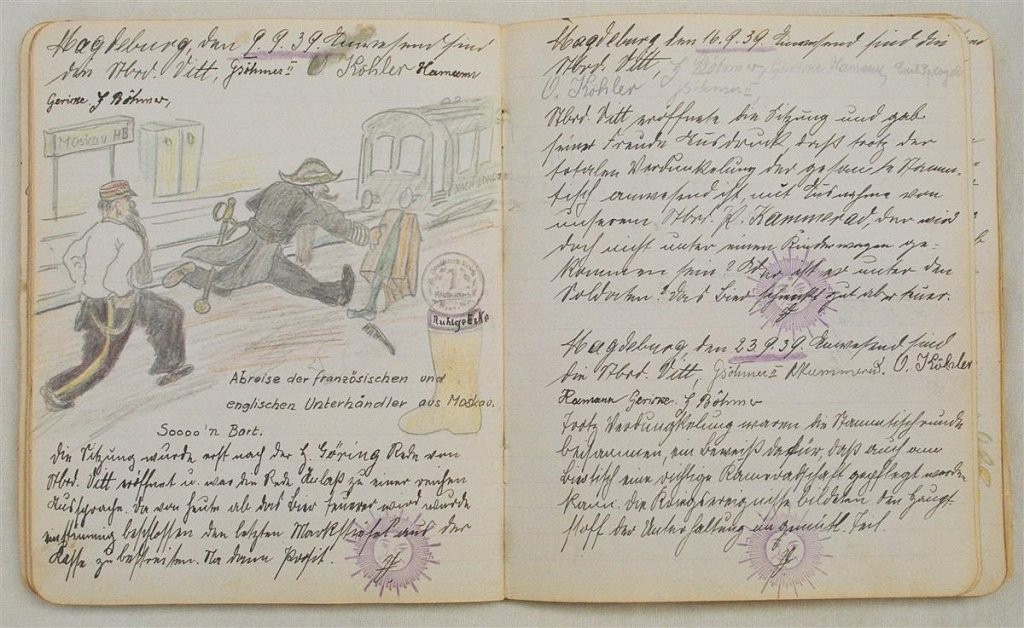 Magdeburg, den 9.9.39. Anwesend sind
den Stbrd. Vitt, Gsöhmer II O Köhler Hamann
Gericke H Böhmer,
Moskau HB
NACH
Ruhige Ecke
Abreise der französischen und
englischen Unterhändler aus Moskau.
Soooo'n Bart.
Die Sitzung wurde erst nach der H. Göring Rede von
Stbrd. Vitt eröffnet u. war die Rede Anlaß zu einer reichen
Aussprache. Da von heute ab das Bier teurer wird wurde
einstimmig beschlossen den letzten aus der
Kasse zu bestreiten. Na dann Prosit.
Magdeburg, den 16.9.39. Anwesend sind die
Stbrd. Vitt, H Böhmer, Gericke Hamann,
O. Köhler Gsöhmer II
Stbrd. Vitt eröffnete die Sitzung und gab
seiner Freude Ausdruck, daß trotz der
totalen Verdunkelung der gesamte Stamm-
tisch anwesend ist, mit Ausnahme von
unserem Stbrd. K. Kammerad, der wird
doch nicht unter einen Kinderwagen ge-
kommen sein? Oder ist er unter den
Soldaten? Das Bier schmeckt gut aber teuer.
Magdeburg, den 23.9.39. Anwesend sind
die Stbrd. Vitt, Gsöhmer II O. Köhler
Hamann Gericke H Böhmer
Trotz Verdunkelung waren die Stammtischrunde
beisammen, ein Beweiß dafür, daß auch am
Biertisch eine richtige Kameradschaft gepflegt werden
kann. Die Kriegsereignisse bildeten den Haupt-
stoff der Unterhaltung im gemütl. Teil.